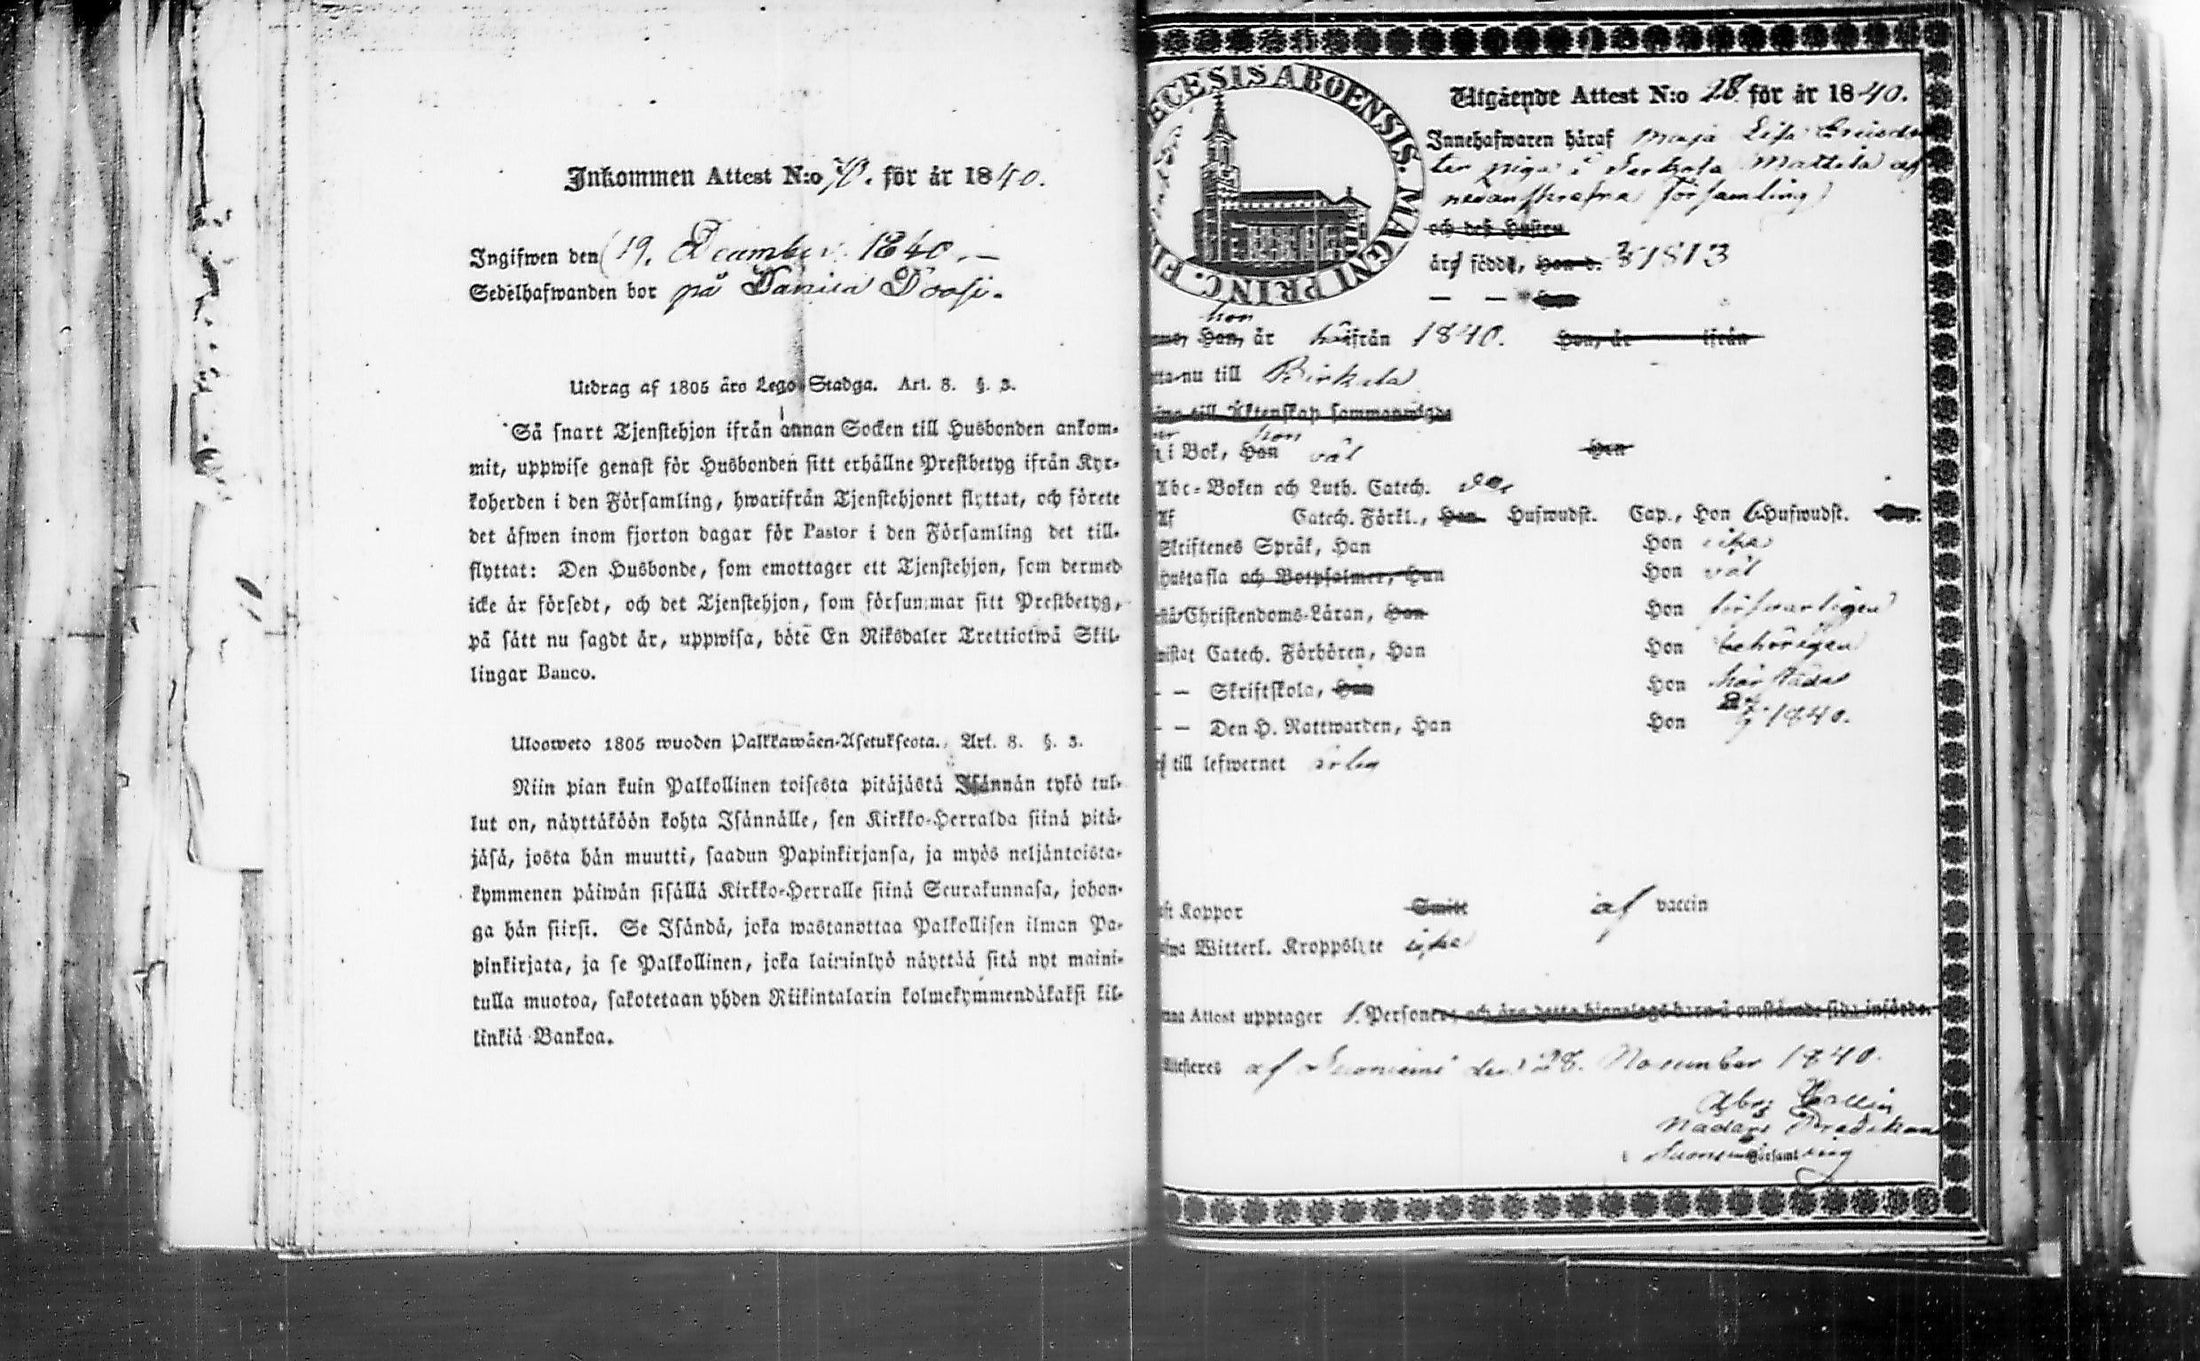 Inkommen Attest N:o 70. för år 1840.
Ingifwen den 19. December 1840.
Sedelhafwanden bor på
Utdrag af 1805 års Lego-Stadga. Art. 8. §. 3.
Så snart Tjenstehjon ifrån annan Socken till Husbonden ankom-
mit, uppwise genast för Husbonden sitt erhållne Prestbetyg ifrån Kyr-
koherden i den Församling, hwarifrån Tjenstehjonet flyttat, och förete
det äfwen inom fjorton dagar för Pastor i den Församling det till-
flyttat: Den Husbonde, som emottager ett Tjenstehjon, som dermed
icke är försedt, och det Tjenstehjon, som försummar sitt Prestbetyg,
på sätt nu sagdt är, uppwisa, böte En Riksdaler Trettiotwå Skil-
lingar Banco.
Ulosweto 1805 wuoden Palkkawäen-Asetuksesta. Art. 8. §. 3.
Niin pian kuin Palkollinen toisesta pitäjästä Isännän tykö tul-
lut on, näyttäköön kohta Isännälle, sen Kirkko-Herralda siinä pitä-
jäsä, josta hän muutti, saadun Papinkirjansa, ja myös neljäntoista-
kymmenen päiwän sisällä Kirkko-Herralle siinä Seurakunnasa, johon-
ga hän siirsi. Se Isändä, joka wastanottaa Palkollisen ilman Pa-
pinkirjata, ja se Palkollinen, joka laiminlyö näyttää sitä nyt maini-
tulla muotoa, sakotetaan yhden Riikintalarin kolmekymmendäkaksi kil-
linkiä Bankoa.
ECESIS ABOENSIS. MAGNI PRINC. FI
Utgående Attest N:o 28 för år 1840.
Innehafwaren häraf Maja Lisa
ter piga i Mattila af
nedanskrefne Församling
och deß Hustru
är född, Hon d. 3/ 1813
hon
Han, är härifrån 1840. Hon, är ifrån
nu till Birkala
till Äktenskap sammanwigde
hon
i Bok, Han väl Hon
Abc-Boken och Luth. Catech.
Af Catech. Förkl., Han Hufwudst. Cap., Hon 6 Hufwudst. Cap.
Skriftenes Språk, Han Hon icke
Hustafla och Botpsalmer, Han Hon väl
Christendoms-Läran, Han Hon försvarligen
Catech. Förhören, Han Hon behörigen
— — Skriftskola, Han Hon härstädes
— — Den H. Nattwarden, Han Hon 1840.
till lefwernet ärlig
Koppor Smitt af vaccin
Witterl. Kroppslyte icke
Attest upptager 1. Personer och äro detta hjonelags barn å omstående sida införde.
Attesteres af Suoniemi den 28. November 1840.
Abr:
Predikant
i Suoniemi Församling